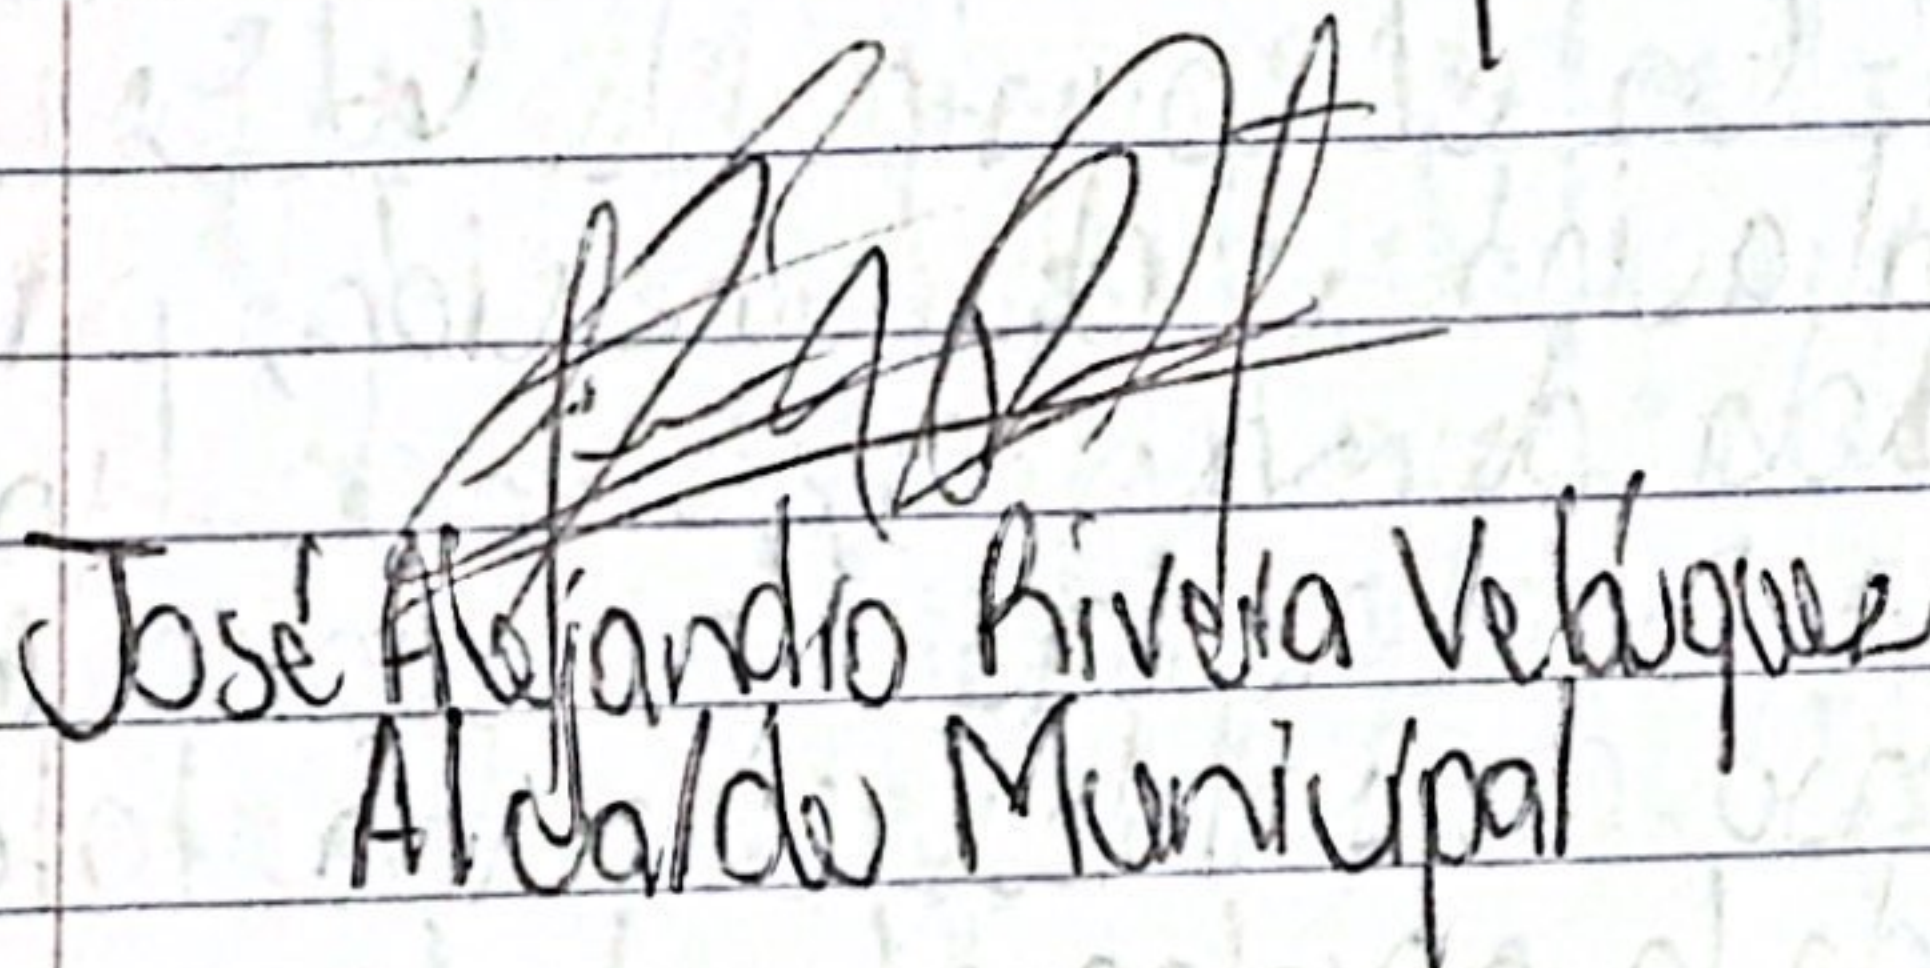 José Alejandro Rivera Velásquez
Alcalde Municipal